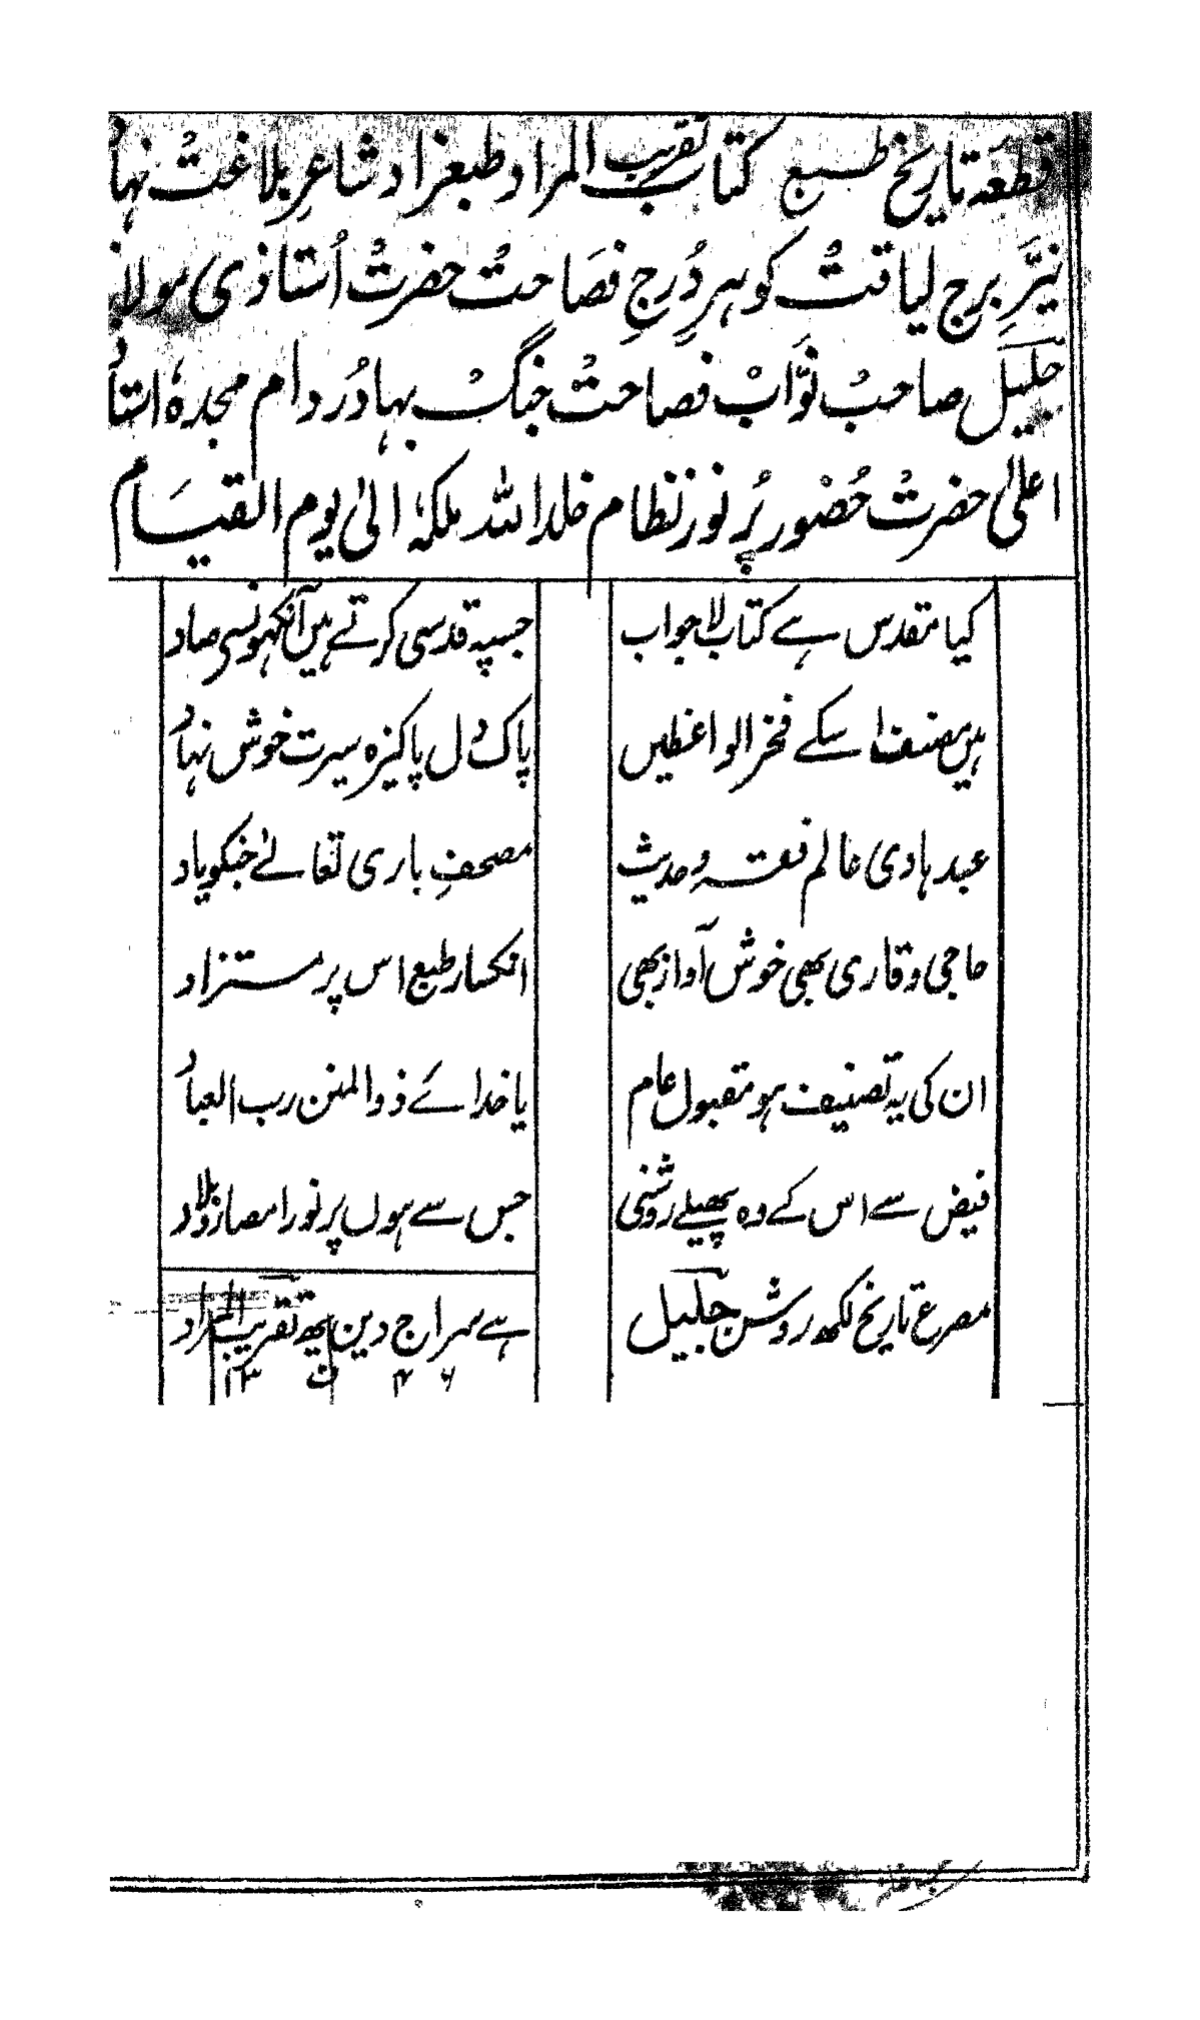 قطعہ تاریخ طبع کتاب تقریب المراد طبعزاد شاعر بلاغت نہاد
نیّرِ برج لیاقت گوہر دُرجِ فصاحت حضرت اُستاذی مولانا
جلیل صاحب نوّاب فصاحت جنگ بہادُر دام مجدہٗ استاد
اعلیٰ حضرت حضور پُر نور نظام خلد اللہ ملکہٗ الیٰ یوم القیام
کیا مقدس ہے کتاب لا جواب
جسپہ قدسی کرتے ہیں آنکھونسے صاد
ہیں مصنف اسکے فخر الواعظیں
پاک دل پاکیزہ سیرت خوش نہاد
عبد ہادی عالم فقہ و حدیث
مصحفِ باری تعالےٰ جنکو یاد
حاجی و قاری بھی خوش آواز بھی
انکسار طبع اس پر مستزاد
ان کی یہ تصنیف ہو مقبول عام
یا خدائے ذوالمنن رب العباد
فیض سے اس کے وہ پھیلے روشنی
جس سے ہوں پر نور امصار و بلاد
مصرع تاریخ لکھ روشن جلیل
ہے سراج دین یہ تقریب المراد
۱۳ ۴۶